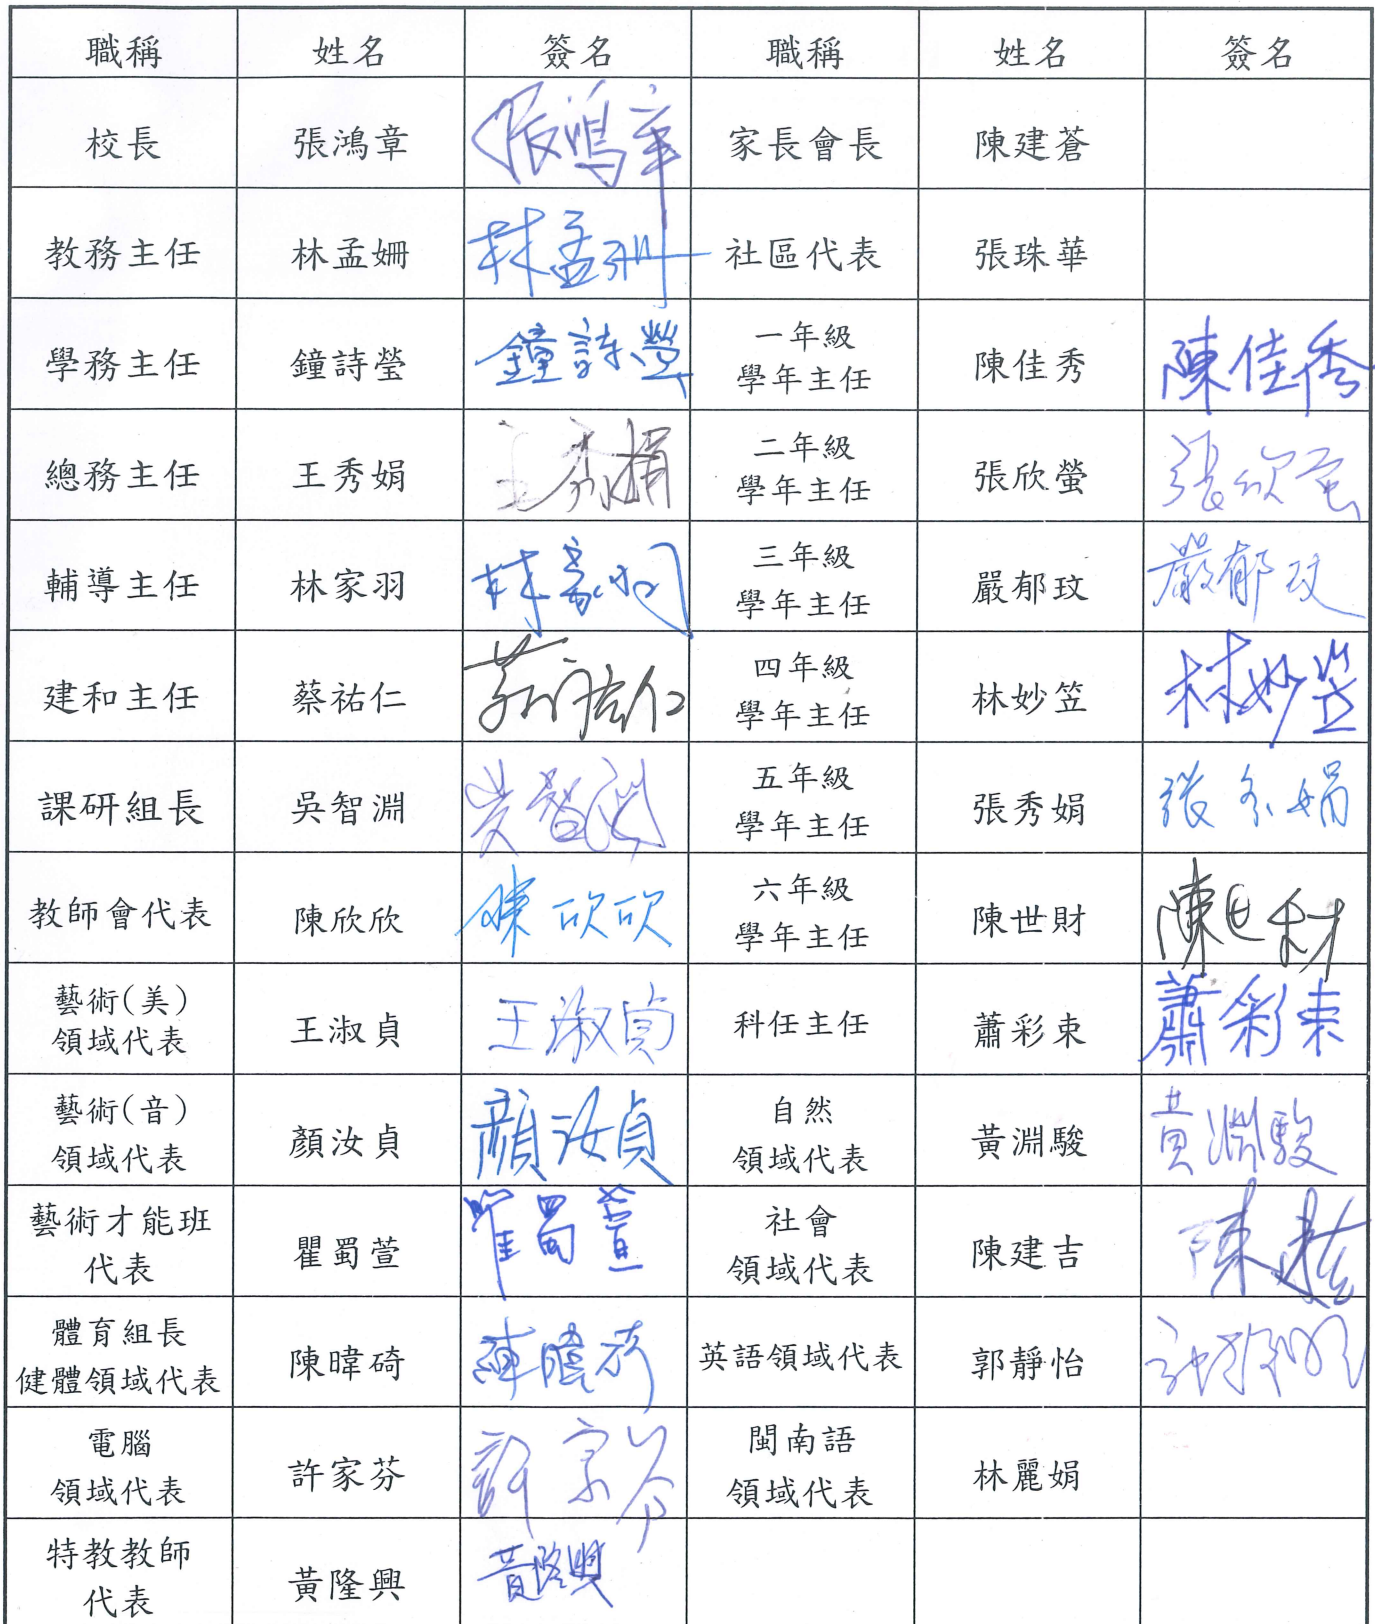 職稱 姓名 簽名 職稱 姓名 簽名
校長 張鴻章 張鴻章 家長會長 陳建蒼
教務主任 林孟姍 林孟姍 社區代表 張珠華
學務主任 鐘詩瑩 鐘詩瑩 一年級
學年主任 陳佳秀 陳佳秀
總務主任 王秀娟 王秀娟 二年級
學年主任 張欣螢 張欣螢
輔導主任 林家羽 三年級
學年主任 嚴郁玟 嚴郁玟
建和主任 蔡祐仁 蔡祐仁 四年級
學年主任 林妙笠 林妙笠
課研組長 吳智淵 吳智淵 五年級
學年主任 張秀娟 張秀娟
教師會代表 陳欣欣 陳欣欣 六年級
學年主任 陳世財 陳世財
藝術(美)
領域代表 王淑貞 王淑貞 科任主任 蕭彩束 蕭彩束
藝術(音)
領域代表 顏汝貞 顏汝貞 自然
領域代表 黃淵駿 黃淵駿
藝術才能班
代表 瞿蜀萱 瞿蜀萱 社會
領域代表 陳建吉 陳建吉
體育組長
健體領域代表 陳暐碕 陳暐碕 英語領域代表 郭靜怡
電腦
領域代表 許家芬 許家芬 閩南語
領域代表 林麗娟
特教教師
代表 黃隆興 黃隆興